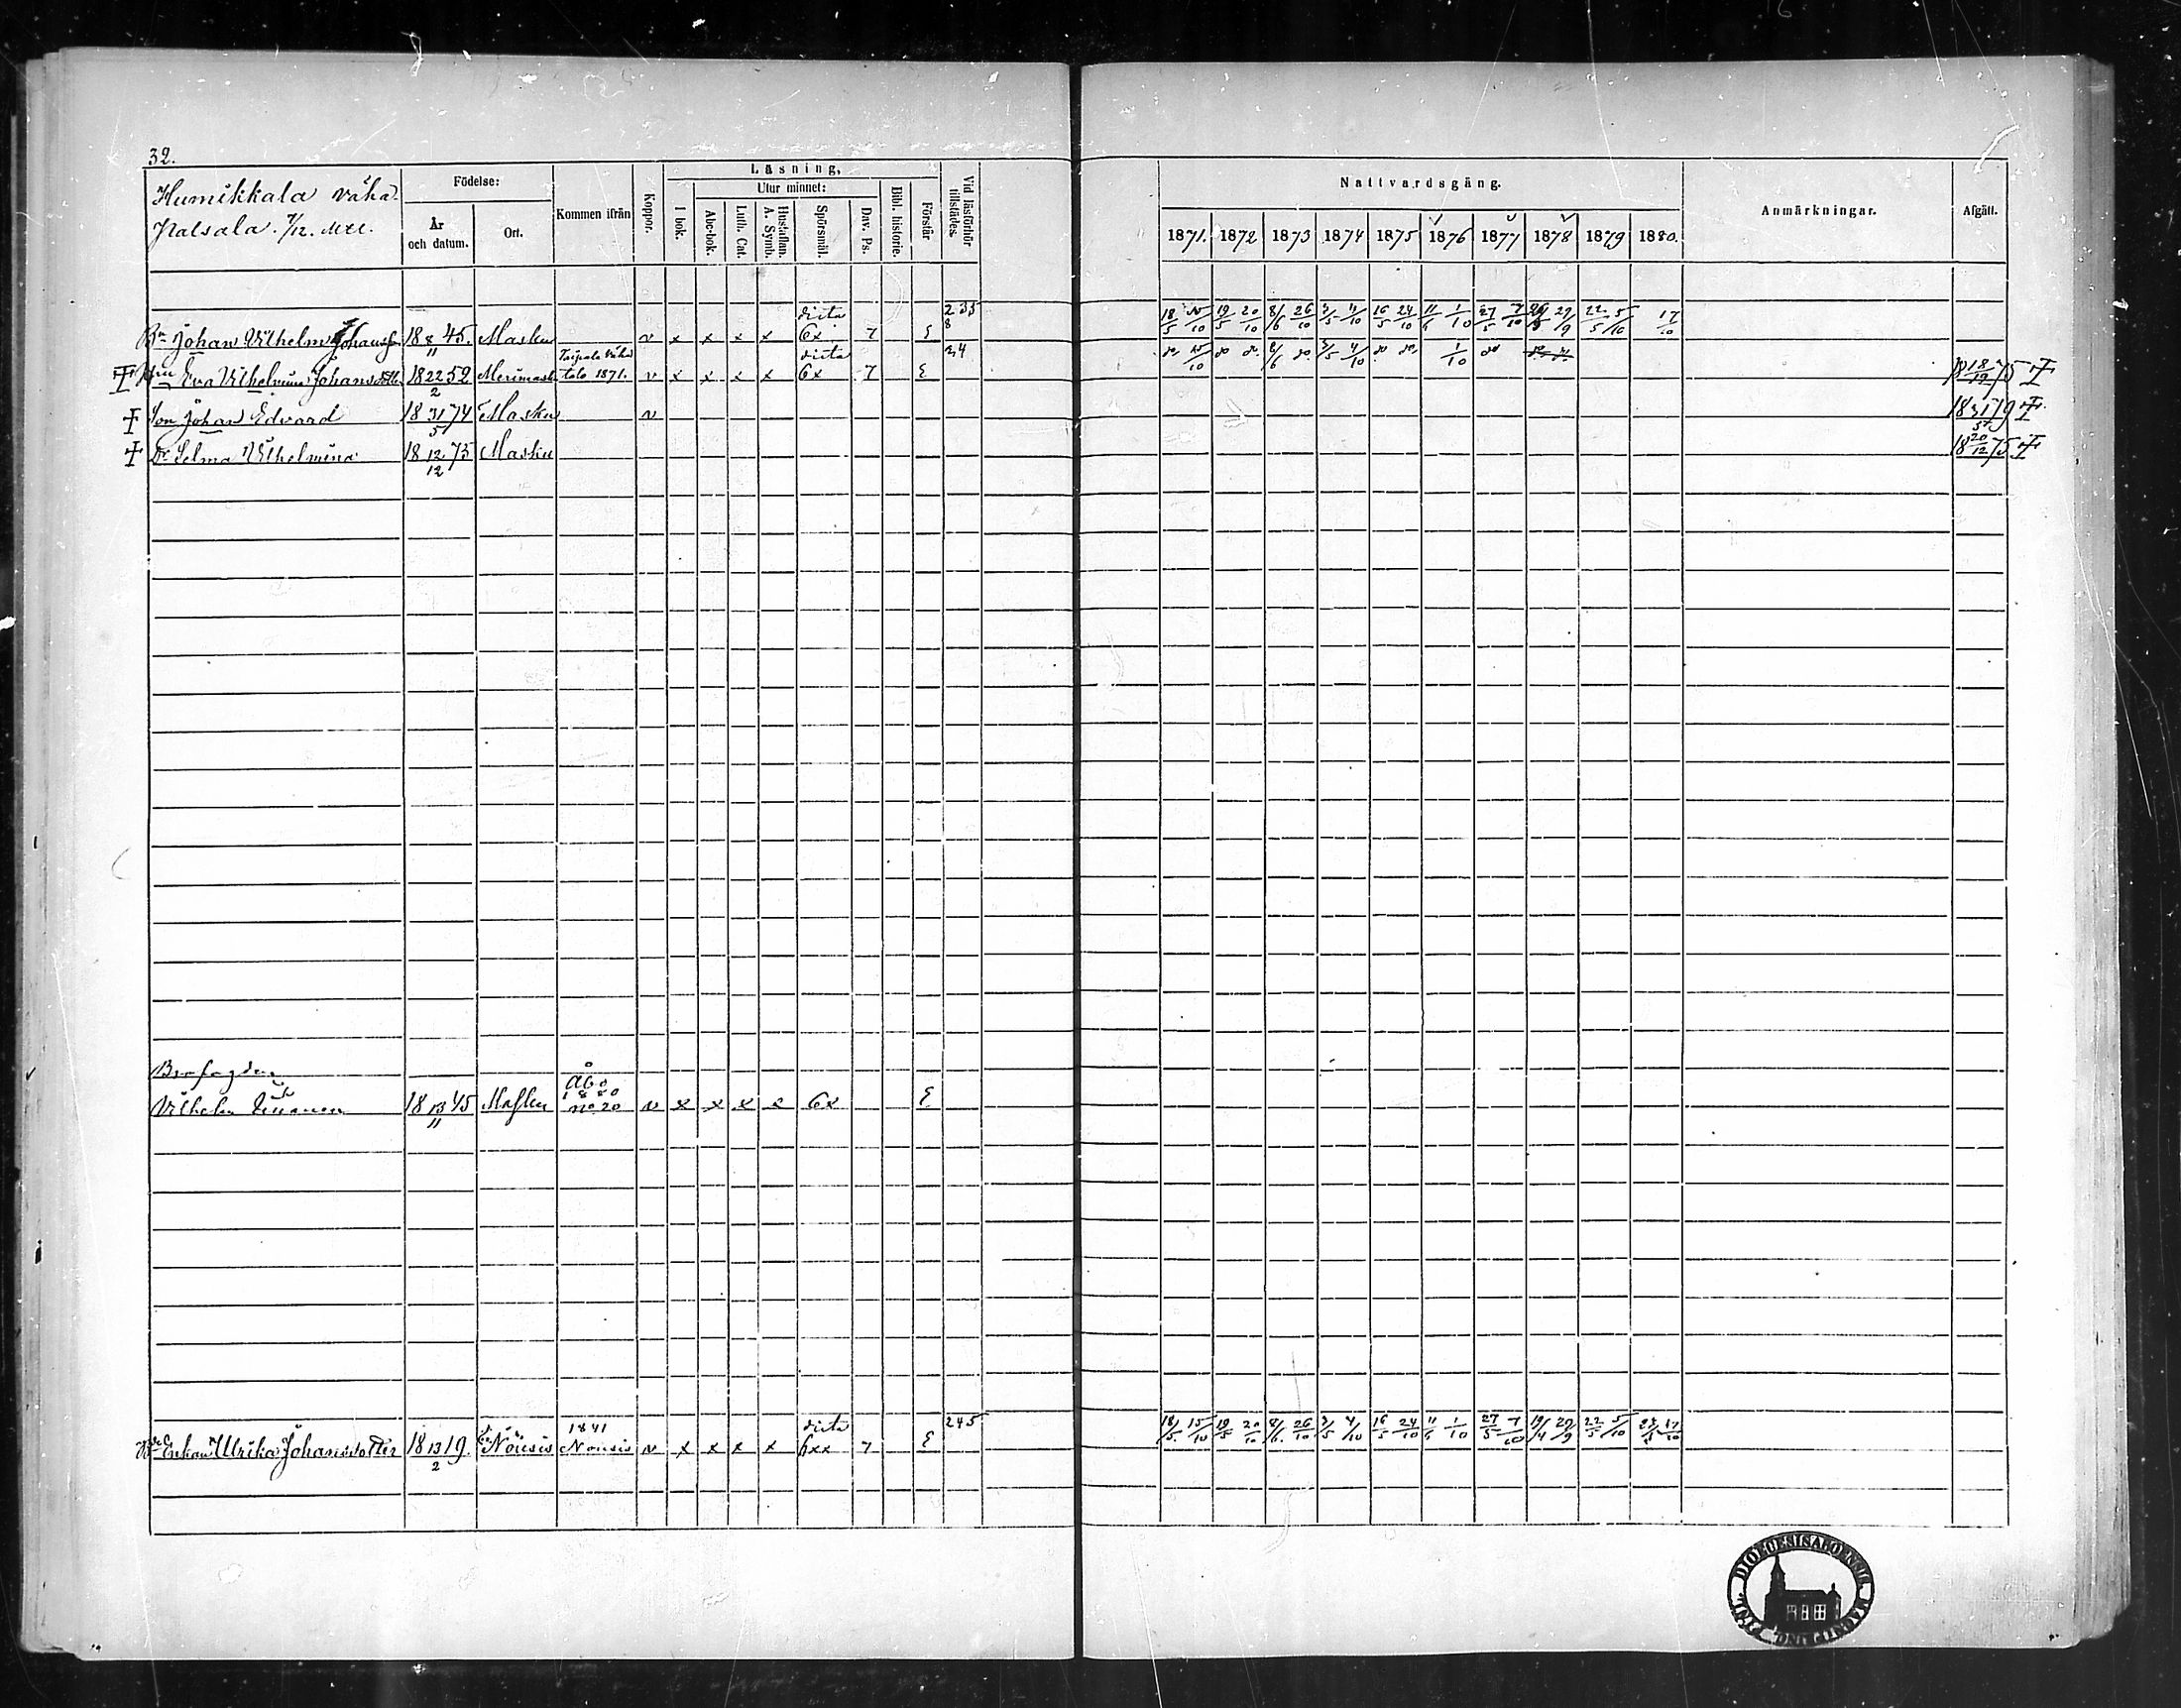 32.
Humikkala Vähä-
Födelse:
År och datum.
Ort.
Kommen ifrån
Koppor.
Läsning,
I bok.
Utur minnet:
Abc-bok.
Luth. Cat.
Hustaflan. A. Symb.
Spörsmål.
Dav. Ps.
Bibl. historie.
Förstår
Vid läsförhör tillstädes.
Nattvardsgång.
1871. 1872 1873 1874 1875 1876 1877 1878 1879 1880.
Anmärkningar.
Afgått.
Johan Vilhelm Johansson 18 8/11 45. Masku v x x x x 6x 7 235 8
18/5 15/10 19/5 20/10 8/6 26/10 3/5 4/10 16/5 24/10 11/6 1/10 27/5 7/10 29/9 22/5 5/10 17/10
Eva Vilhelmina Johansdotter 18 22/2 52 Merimask Taipale Vähä talo 1871. v x x x x 6x 7 34
Son Johan Edvard 18 31/5 74 Masku v 18 31/5 79
Dr Selma Vilhelmina 18 12/12 75 Masku 18 20/12 75
Vilhelm 18 13/11 45 Masku Åbo 1880 no 20 v x x x x 6x
Enkan Ulrika Johansdotter 18 13/2 19. Nousis 1841 Nousis v x x x x 6xx 7 245
18/5 15/10 19/5 20/10 8/6 26/10 3/5 4/10 16/5 24/10 11/6 1/10 27/5 7/10 19/4 29/9 22/5 5/10 17/10
SIGIL. DIOECESIS ABOENSIS MAGNI PRINC.